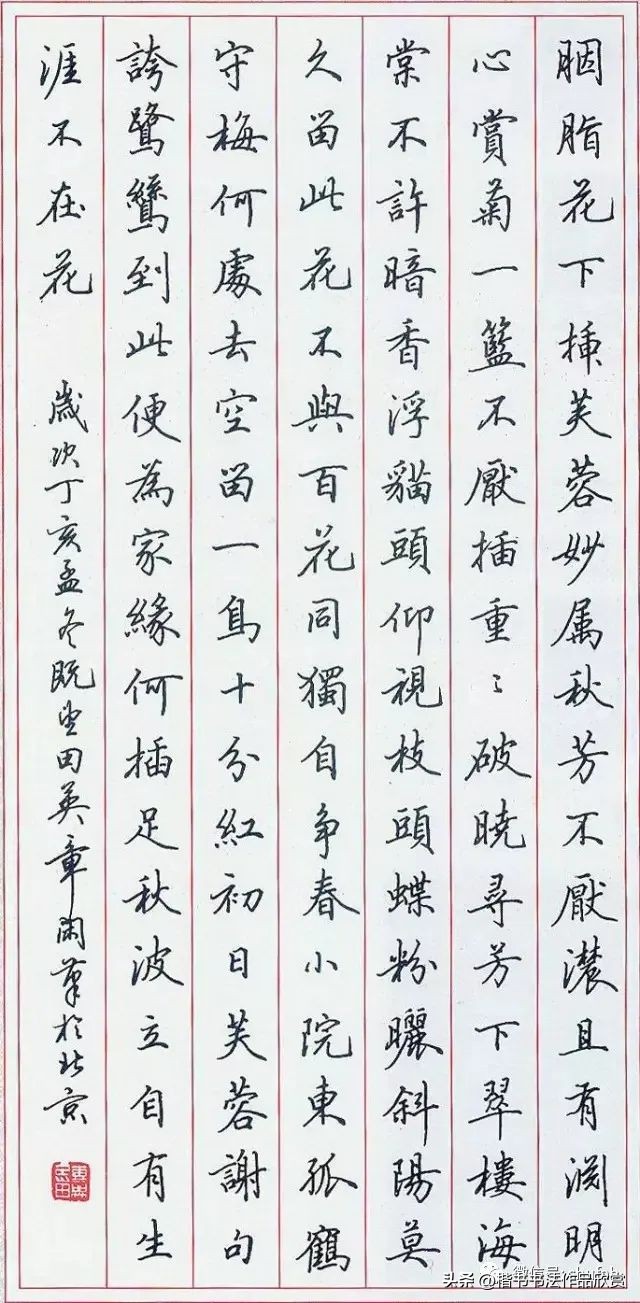 胭脂花下挿芙蓉妙属秋芳不厭濃且有渕明
心賞菊一籃不厭插重〻破曉尋芳下翠樓海
棠不許暗香浮貓頭仰視枝頭蝶粉曬斜陽莫
久留此花不與百花同獨自争春小院東孤鶴
守梅何處去空留一鳥十分紅初日芙蓉謝句
誇鷺鷥到此便為家緣何插足秋波立自有生
涯不在花
歲次丁亥孟冬既望田英章閑筆於北京
头条 @楷书书法作品欣赏